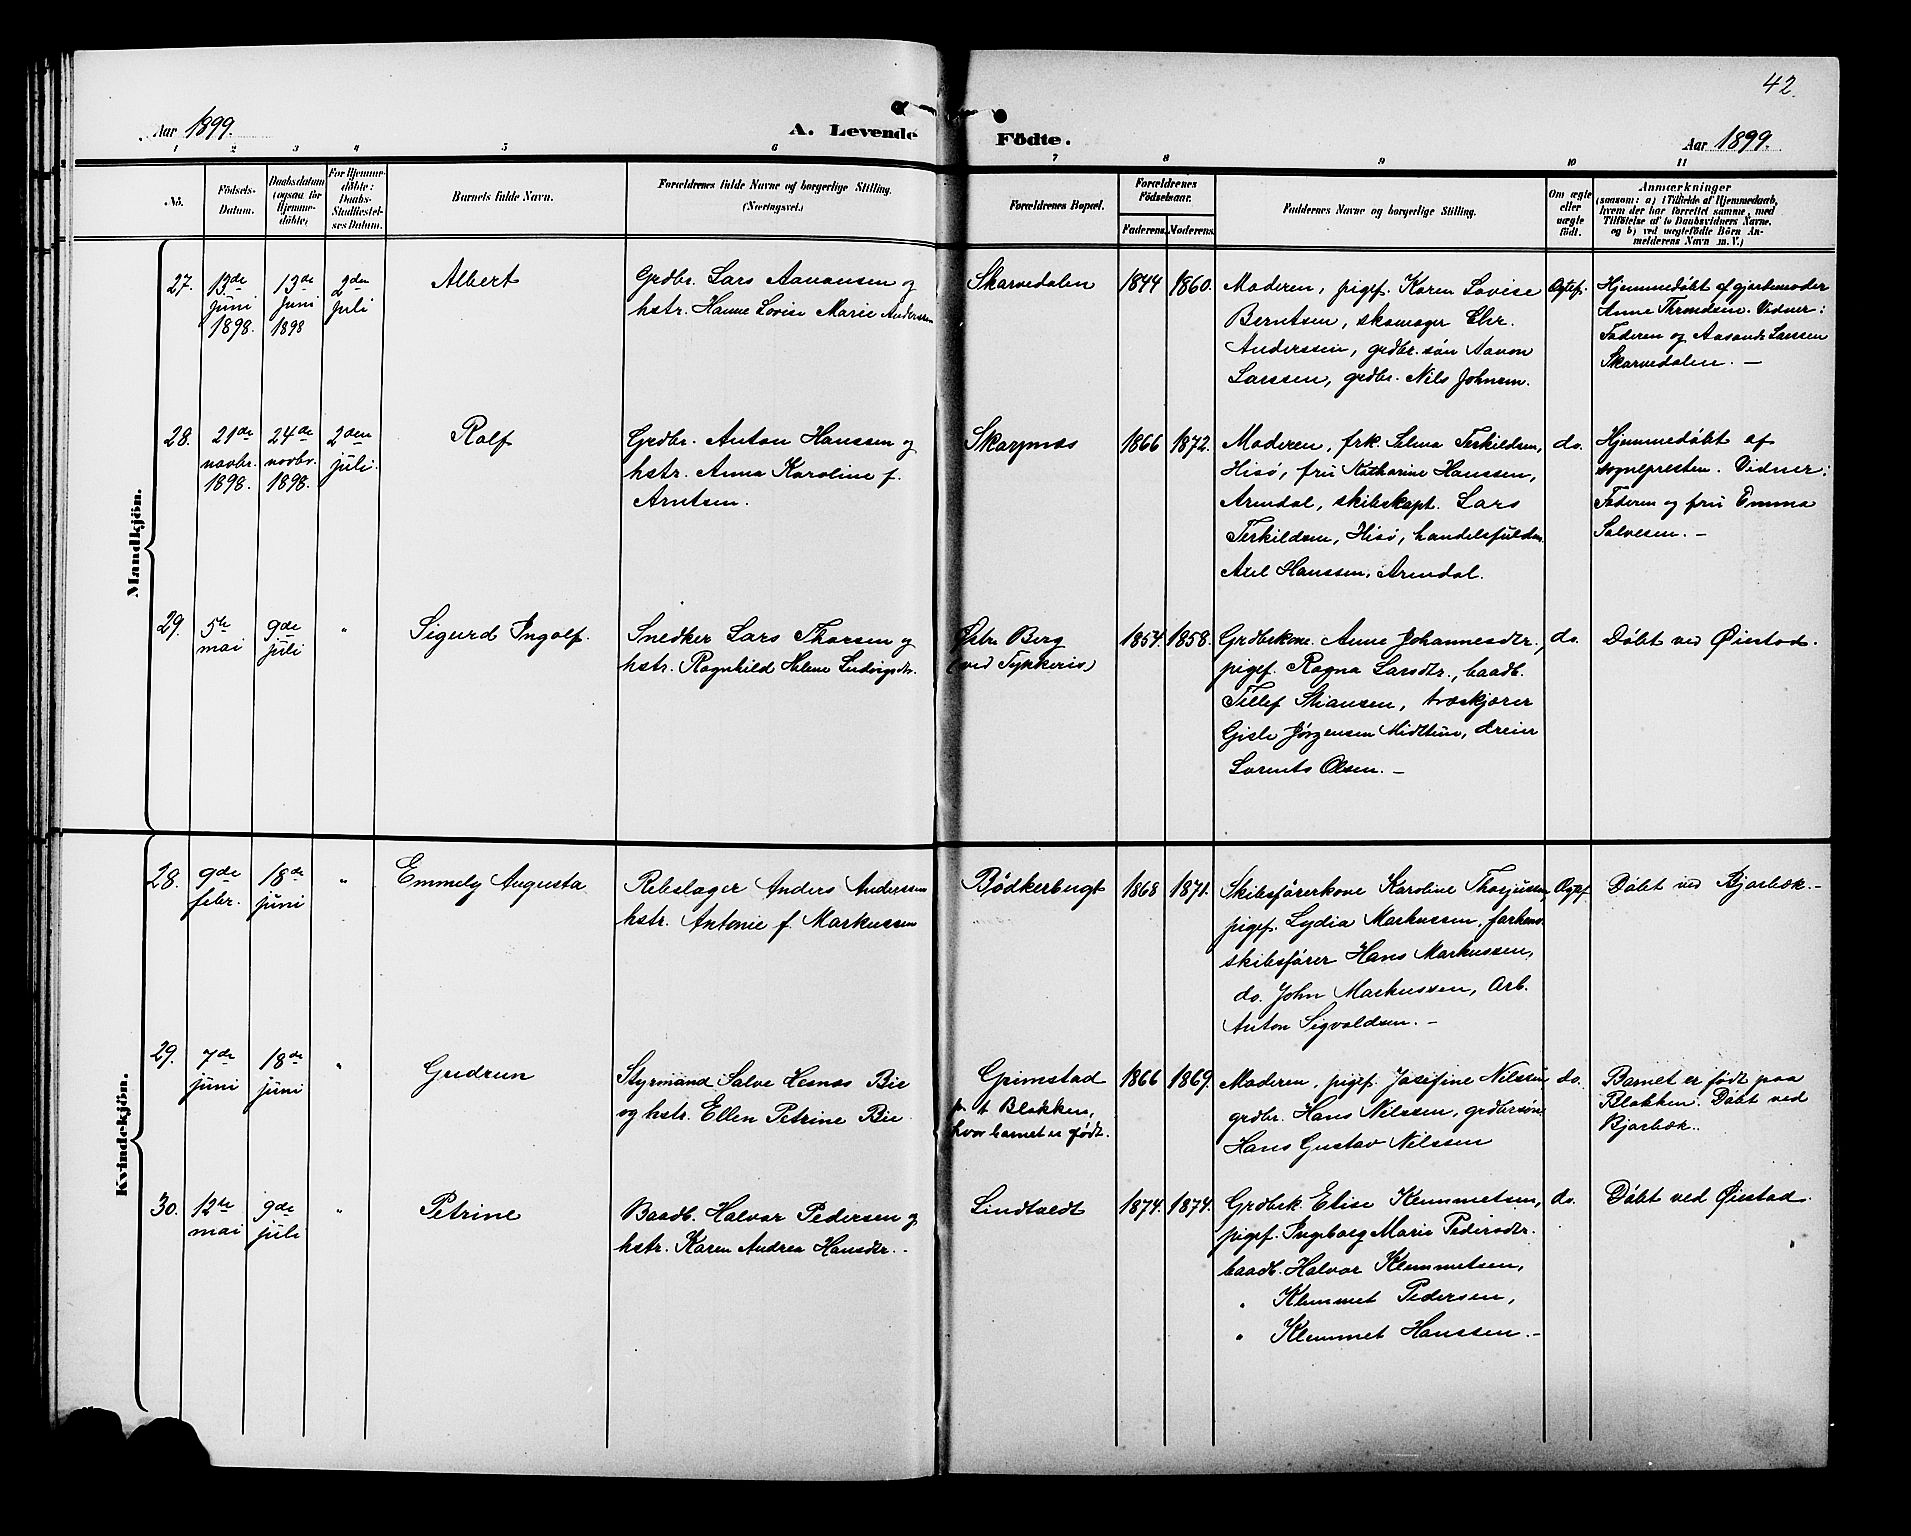 42.
Aar 1899.
A. Levende
Födte.
Aar 1899.
1
2
3
4
5
6
7
8
9
10
11
No.
Födsels-
Datum.
Daabsdatum
(ogsaa for
Hjemme-
döbte)
For Hjemme-
döbte:
Daabs-
Stadfæstel-
ses Datum.
Barnets fulde Navn.
Forældrenes fulde Navne og borgerlige Stilling.
(Næringsvei.)
Forældrenes Bopæl.
Forældrenes
Födselsaar.
Faderens.
Moderens.
Faddernes Navne og borgerlige Stilling.
Om ægte
eller
uægte
födt.
Anmærkninger
(saasom: a) i Tilfælde af Hjemmedaab,
hvem der har forrettet samme, med
Tilföielse af to Daabsvidners Navne,
og b) ved uægtefödte Börn An-
melderens Navn m. V.)
Mandkjön.
27.
13de
juni
1898.
13de
juni
1898
2den
juli
Albert
Grdbr. Lars Aanonsen og
hstr. Hanne Lovise Marie Anderssen
Skarvedalen
1844
1860.
Moderen, pigef. Karen Lovise
Berntsen, skomager Chr.
Anderssen, grdbr. søn Aavon
Larssen, grdbr. Nils Johnsen.
Ægtef.
Hjemmedøbt af gjordemoder
Anne Throndsen. Vidner:
Faderen og Aasonds Larssen
Skarvedalen. –
28.
21de
novbr.
1898.
24de
novbr.
1898.
2den
juli.
Rolf
Grdbr. Anton Hanssen og
hstr. Anna Karoline f.
Arntsen.
Skarpnæs
1866
1872.
Moderen, frk. Selma Terkildsen,
Hisø, fru Katharine Hanssen,
Arendal, skibskapt. Lars
Terkildsen, Hisø, handelsfuldm.
Axel Hanssen, Arendal.
do.
Hjemmedøbt af
sognepresten. Vidner:
Faderen og fru Emma
Salvesen. –
29.
5te
mai
9de
juli
"
Sigurd Ingolf.
Snedker Lars Thorsen og
hstr. Ragnhild Helene Ludvigsdtr.
Østre Berg
(ved Tykkeris)
1854.
1858.
Grdbrkone Anne Johannesdtr.,
pigef. Ragna Larsdtr., baadb.
Tellef Stiansen, træskjærer
Gisle Jørgensen Midttun, dreier
Lorents Olsen. –
do.
Døbt ved Øiestad.
Kvindekjön.
28.
9de
febr.
18de
juni
"
Emmely Augusta
Rebslager Anders Anderssen
hstr. Antonie f. Markussen
Bødkerbugt
1868
1871.
Skibsførerkone Karoline Thorjussen,
pigef. Lydia Markussen, forhenv.
skibsfører Hans Markussen,
do. John Markussen, Arb.
Anton Sigvaldsen. –
Ægtef.
Døbt ved Bjorbæk. –
29.
7de
juni
18de
juni
"
Gudrun
Styrmand Salve Hesnæs Bie
og hstr. Ellen Petrine Bie
Grimstad
p. t Blakken,
hvor barnet er født.
1866
1869.
Moderen, pigef. Josefine Nilssen,
grdbr. Hans Nilssen, grdbrsøn
Hans Gustav Nilssen
do.
Barnet er født paa
Blakken. Døbt ved
Bjorbæk.
30.
12te
mai
9de
juli
"
Petrine
Baadb. Halvor Pedersen og
hstr. Karen Andrea Hansdtr. –
Lindtvedt
1874.
1874.
Grdbrk. Elise Klemmetsen,
pigef. Ingeborg Marie Pedersdtr.
baadb. Halvor Klemmetsen,
" Klemmet Pedersen,
" Klemmet Hanssen. –
do.
Døbt ved Øiestad.